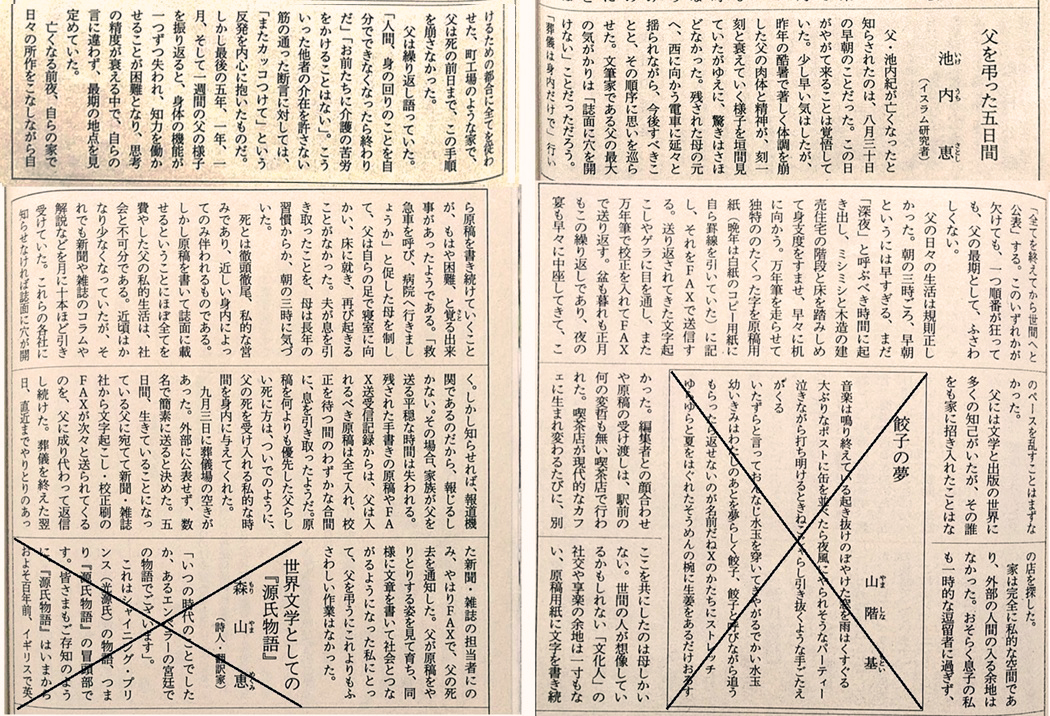 父を弔った五日間
池内恵
いけ うち さとし
（イスラム研究者）
父・池内紀が亡くなったと
知らされたのは、八月三十日
の早朝のことだった。この日
がやがて来ることは覚悟して
いた。少し早い気はしたが、
昨年の酷暑で著しく体調を崩
した父の肉体と精神が、刻一
刻と衰えていく様子を垣間見
ていたがゆえに、驚きはさほ
どなかった。残された母の元
へ、西に向かう電車に延々と
揺られながら、今後すべきこ
とと、その順序に思いを巡ら
せた。文筆家である父の最大
の気がかりは「誌面に穴を開
けない」ことだっただろう。
「葬儀は身内だけで」行い
「全てを終えてから世間へと
公表」する。このいずれかが
欠けても、一つ順番が狂って
も、父の最期として、ふさわ
しくない。
父の日々の生活は規則正し
かった。朝の三時ごろ、早朝
というには早すぎる、まだ
「深夜」と呼ぶべき時間に起
き出し、ミシミシと木造の建
売住宅の階段と床を踏みしめ
て身支度をすませ、早々に机
に向かう。万年筆を走らせて
独特ののたくった字を原稿用
紙（晩年は白紙のコピー用紙に
自ら罫線を引いていた）に記
し、それをFAXで送信す
る。送り返されてきた文字起
こしやゲラに目を通し、また
万年筆で校正を入れてFAX
で送り返す。盆も暮れも正月
もこの繰り返しであり、夜の
宴も早々に中座してきて、こ
のペースを乱すことはまずな
かった。
父には文学と出版の世界に
多くの知己がいたが、その誰
をも家に招き入れたことはな
かった。編集者との顔合わせ
や原稿の受け渡しは、駅前の
何の変哲も無い喫茶店で行わ
れた。喫茶店が現代的なカフ
ェに生まれ変わるたびに、別
の店を探した。
家は完全に私的な空間であ
り、外部の人間の入る余地は
なかった。おそらく息子の私
も一時的な逗留者に過ぎず、
ここを共にしたのは母しかい
ない。世間の人が想像してい
るかもしれない「文化人」の
社交や享楽の余地は一寸もな
い、原稿用紙に文字を書き続
餃子の夢
山階基
やま しな もとい
音楽は鳴り終えている起き抜けのぼやけた窓を雨はくすぐる
大ぶりなポストに缶を並べたら夜風にやられそうなパーティー
泣きながら打ち明けるときねこじゃらし引き抜くような手ごたえ
がくる
いたずらと言っておんなじ水玉を穿いてきやがるでかい水玉
幼いきみはわたしのあとを夢らしく餃子、餃子と呼びながら追う
もらったら返せないのが名前だねXのかたちにストレッチ
ゆらゆらと夏をはぐれたそうめんの椀に生姜をあるだけおろす
けるための都合に全てを従わ
せた、町工場のような家で、
父は死の前日まで、この手順
を崩さなかった。
父は繰り返し語っていた。
「人間、身の回りのことを自
分でできなくなったら終わり
だ」「お前たちに介護の苦労
をかけることはない」。こう
いった他者の介在を許さない
筋の通った断言に対しては、
「またカッコつけて」という
反発を内心に抱いたものだ。
しかし最後の五年、一年、一
月、そして一週間の父の様子
を振り返ると、身体の機能が
一つずつ失われ、知力を働か
せることが困難となり、思考
の精度が衰える中で、自らの
言に違わず、最期の地点を見
定めていた。
亡くなる前夜、自らの家で
日々の所作をこなしながら自
ら原稿を書き続けていくこと
が、もはや困難、と覚る出来
事があったようである。「救
急車を呼び、病院へ行きまし
ょうか」と促した母を制し
て、父は自らの足で寝室に向
かい、床に就き、再び起きる
ことがなかった。夫が息を引
き取ったことを、母は長年の
習慣からか、朝の三時に気づ
いた。
死とは徹頭徹尾、私的な営
みであり、近しい身内によっ
てのみ伴われるものである。
しかし原稿を書いて誌面に載
せるということにほぼ全てを
費やした父の私的生活は、社
会と不可分である。近頃はか
なり少なくなっていたが、そ
れでも新聞や雑誌のコラムや
解説などを月に十本ほど引き
受けていた。これらの各社に
知らせなければ誌面に穴が開
く。しかし知らせれば、報道機
関であるのだから、報じるし
かない。その場合、家族が父を
送る平穏な時間は失われる。
残された手書きの原稿やFA
X送受信記録からは、父は入
れるべき原稿は全て入れ、校
正を待つ間のわずかな合間
に、息を引き取ったようだ。原
稿を何よりも優先した父らし
い死に方は、ついでのように、
父の死を受け入れる私的な時
間を身内に与えてくれた。
九月三日に葬儀場の空きが
あった。外部に公表せず、数
名で簡素に送ると決めた。五
日間、生きていることになっ
ている父に宛てて新聞・雑誌
社から文字起こし・校正刷の
FAXが次々と送られてくる
のを、父に成り代わって返信
し続けた。葬儀を終えた翌
日、直近までやりとりのあっ
た新聞・雑誌の担当者にの
み、やはりFAXで、父の死
去を通知した。父が原稿をや
りとりする姿を見て育ち、同
様に文章を書いて社会とつな
がるようになった私にとっ
て、父を弔うにこれよりもふ
さわしい作業はなかった。
世界文学としての
『源氏物語』
森山恵
もり やま めぐみ
（詩人・翻訳家）
「いつの時代のことでした
か、あるエンペラーの宮廷で
の物語でございます」。
これはシャイニング・プリ
ンス（光源氏）の物語、つま
り『源氏物語』の冒頭部で
す。皆さまもご存知のよう
に『源氏物語』はいまから
およそ百年前、イギリスで英